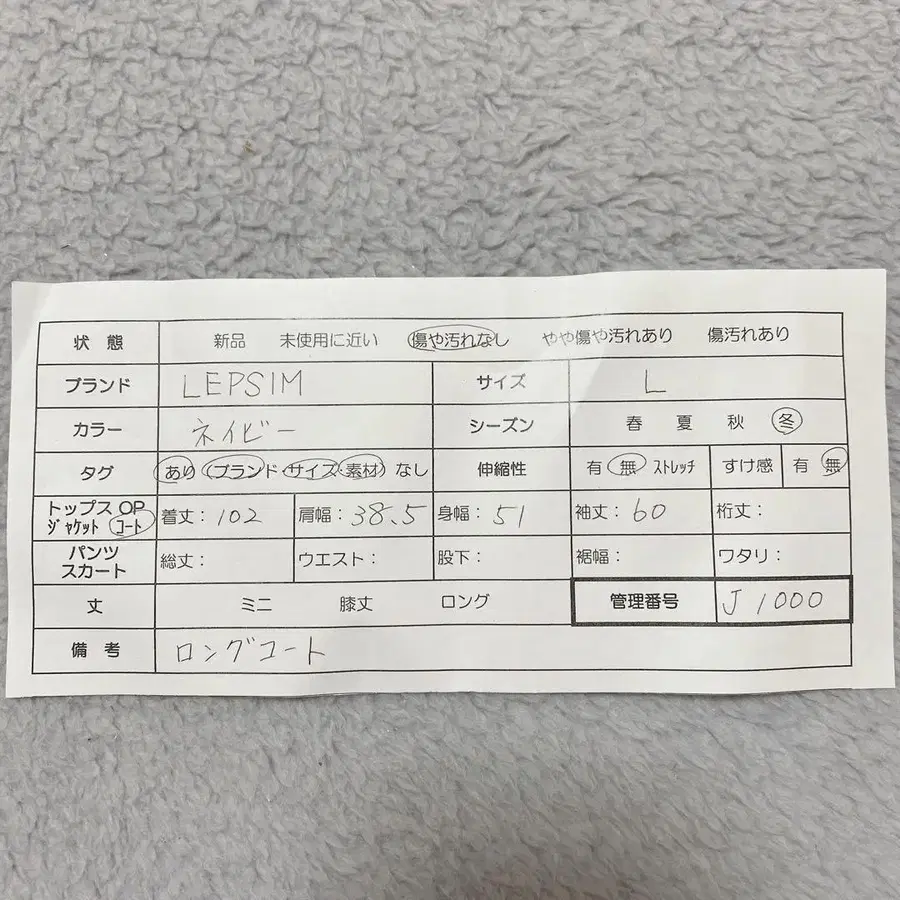 状態 新品 未使用に近い 傷や汚れなし やや傷や汚れあり 傷汚れあり
ブランド LEPSIM サイズ L
カラー ネイビー シーズン 春 夏 秋 冬
タグ あり(ブランド・サイズ・素材) なし 伸縮性 有 無 ストレッチ すけ感 有 無
トップス OP
ジャケット コート 着丈：102 肩幅：38.5 身幅：51 袖丈：60 裄丈：
パンツ
スカート 総丈： ウエスト： 股下： 裾幅： ワタリ：
丈 ミニ 膝丈 ロング 管理番号 J1000
備考 ロングコート